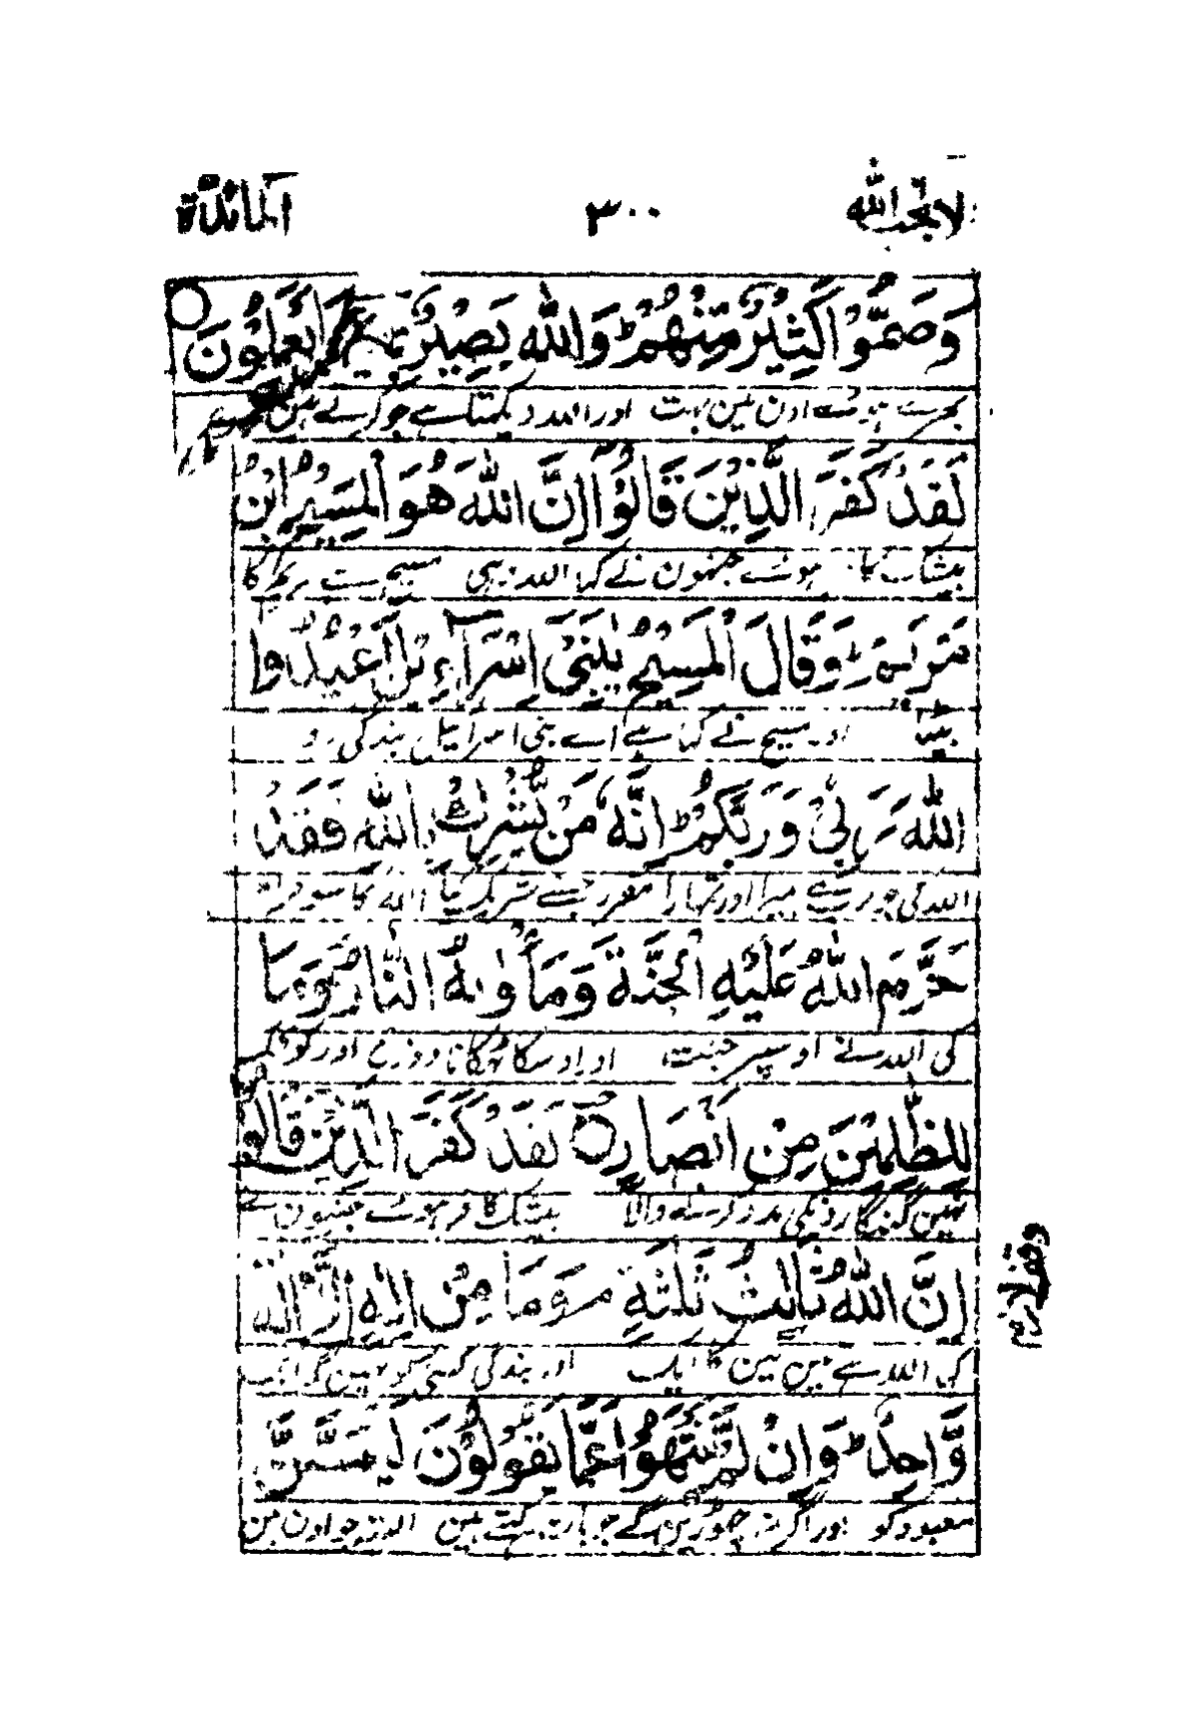 لا یحب الله ۳۰۰ المائدة
وَصَمُّوْا كَثِيْرٌ مِّنْهُمْ ؕ وَاللّٰهُ بَصِيْرٌۢ بِمَا يَعْمَلُوْنَ
بہرے ہوئے اون میں بہت اور اللہ دیکھتا ہے جو کرتے ہین
لَقَدْ كَفَرَ الَّذِيْنَ قَالُوْۤا اِنَّ اللّٰهَ هُوَ الْمَسِيْحُ ابْنُ
بیشک کافر ہوئے جنہون نے کہا اللہ وہی مسیح ہے مریم کا
مَرْيَمَ ؕ وَقَالَ الْمَسِيْحُ يٰبَنِيْۤ اِسْرَآءِيْلَ اعْبُدُوا
بیٹا اور مسیح نے کہا ہے اے بنی اسرائیل بندگی کرو
اللّٰهَ رَبِّيْ وَرَبَّكُمْ ؕ اِنَّهٗ مَنْ يُّشْرِكْ بِاللّٰهِ فَقَدْ
اللہ کی جو رب ہے میرا اور تمہارا مقرر جسنے شریک کیا اللہ کا سو حرام
حَرَّمَ اللّٰهُ عَلَيْهِ الْجَنَّةَ وَمَاْوٰىهُ النَّارُ ؕ وَمَا
کی اللہ نے اوسپر جنت اور اوسکا ٹھکانا دوزخ اور کوئی
لِلظّٰلِمِيْنَ مِنْ اَنْصَارٍ ○ لَقَدْ كَفَرَ الَّذِيْنَ قَالُوْۤا
نہین گنہگارونکی مدد کرنے والا بیشک کافر ہوئے جنہون نے
اِنَّ اللّٰهَ ثَالِثُ ثَلٰثَةٍ ۘ وَمَا مِنْ اِلٰهٍ اِلَّاۤ اِلٰهٌ
وقف لازم
کہا اللہ ہے تین مین کا ایک اور بندگی کسی کو نہین مگر ایک
وَّاحِدٌ ؕ وَاِنْ لَّمْ يَنْتَهُوْا عَمَّا يَقُوْلُوْنَ لَيَمَسَّنَّ
معبود کو اور اگر نہ چھوڑینگے جو بات کہتے ہین البتہ جو اون مین